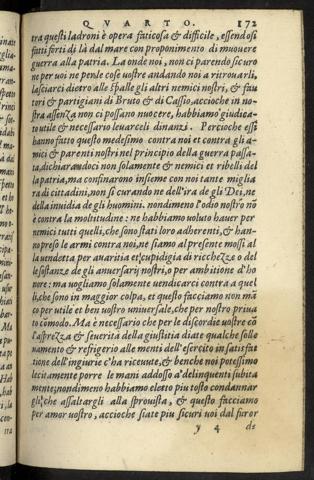 QVARTO. 172
tra questi ladroni è opera faticosa & difficile, essendosi
fatti forti di là dal mare con proponimento di muouere
guerra alla patria. La onde noi, non ci parendo sicuro
ne per voi ne per le cose vostre andando noi a ritrouarli,
lasciarci dietro alle spalle gli altri nemici nostri, & fau
tori & partigiani di Bruto & di Cassio, acciochè in no-
stra assenza non ci possano nuocere, habbiamo giudica-
to vtile & necessario leuarceli dinanzi. Percioche essi
hanno fatto questo medesimo contra noi et contra gli a-
mici & parenti nostri nel principio della guerra passa-
ta, dichiarandoci non solamente & nemici et ribelli del
la patria, ma confinarono insieme con noi tante miglia
ra di cittadini, non si curando ne dell'ira de gli Dei, ne
della inuidia de gli huomini. nondimeno l'odio nostro nō
è contra la moltitudine: ne habbiamo voluto hauer per
nemici tutti quelli, che sono stati loro adherenti, & han-
no preso le armi contra noi, ne siamo al presente mossi al
la vendetta per auaritia et cupidigia di ricchezze o del
le sostanze de gli auuersarij nostri, o per ambitione d'ho
nore: ma vogliamo solamente vendicarci contra a quel
li, che sono in maggior colpa, et questo facciamo non mā
co per vtile et ben vostro vniuersale, che per nostro priua
to cōmodo. Ma è necessario che per le discordie vostre cō
l'asprezza & seuerità della giustitia diate qualche sollo
namento & refrigerio alle menti dell'esercito in satisfat
tione dell'ingiurie c'ha riceuute, & benche noi potessimo
lecitamente porre le mani addosso a'delinquenti subita
mente; nondimeno habbiamo eletto piu tosto condannar
gli, che assaltargli alla sprouista, & questo facciamo
per amor vostro, accioche siate piu sicuri voi dal furor
y 4 de